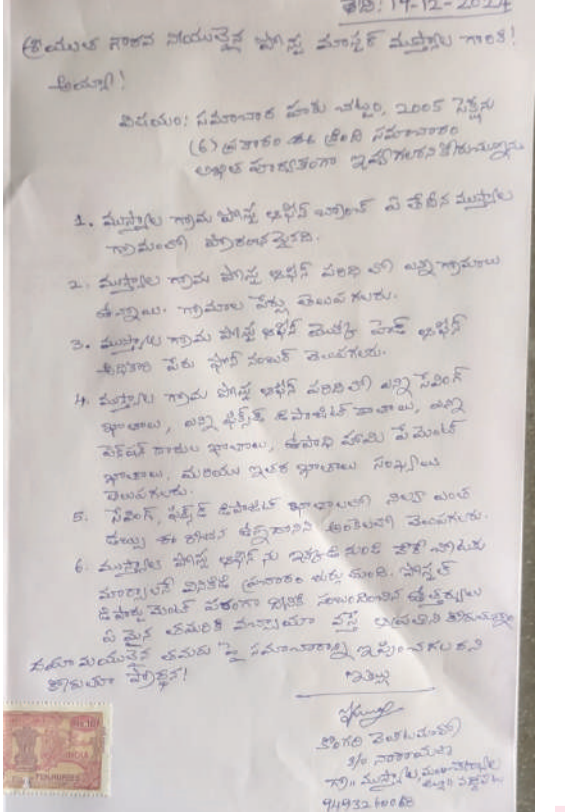 తేది: 19-12-2024
శ్రీయుత గౌరవ నీయులైన పోస్ట్ మాస్టర్ ముస్త్యాల గారికి!
అయ్యా!
విషయం: సమాచార హక్కు చట్టం, 2005 సెక్షను
(6) ప్రకారం ఈ క్రింది సమాచారం
లిఖిత పూర్వకంగా ఇవ్వగలరని కోరుచున్నాను
1. ముస్త్యాల గ్రామ పోస్ట్ ఆఫీస్ బ్రాంచ్ ఏ తేదీన ముస్త్యాల
గ్రామంలో ప్రారంభమైనది.
2. ముస్త్యాల గ్రామ పోస్ట్ ఆఫీస్ పరిధి లో ఎన్ని గ్రామాలు
ఉన్నాయి. గ్రామాల పేర్లు తెలుప గలరు.
3. ముస్త్యాల గ్రామ పోస్ట్ ఆఫీస్ యొక్క హెడ్ ఆఫీస్
అధికారి పేరు ఫోన్ నంబర్ తెలుపగలరు.
4. ముస్త్యాల గ్రామ పోస్ట్ ఆఫీస్ పరిధిలో ఎన్ని సేవింగ్
ఖాతాలు, ఎన్ని ఫిక్స్‌డ్ డిపాజిట్ ఖాతాలు, ఎన్ని
పెన్షన్ దారుల ఖాతాలు, ఉపాధి హామి పేమెంట్
ఖాతాలు, మరియు ఇతర ఖాతాలు సంఖ్యలు
తెలుపగలరు.
5. సేవింగ్, ఫిక్స్‌డ్ డిపాజిట్ ఖాతాలలో నిల్వ ఎంత
డబ్బు ఈ రోజున ఉన్నదానిని అంకెలలో తెలుపగలరు.
6. ముస్త్యాల పోస్ట్ ఆఫీస్ ను ఇక్కడి నుండి వేరే చోటుకు
మార్చాలనే వినికిడి ప్రచారం జరుగుతుంది. పోస్టల్
డిపార్ట్ మెంట్ పరంగా దీనికి సంబంధించిన ఉత్తర్వులు
ఏ మైన తమరికి వచ్చాయా వస్తే
దయా మయులైన తమరు పై సమాచారాన్ని ఇప్పించ గలరని
కోరుతూ ప్రార్థన!
ఇట్లు
S/o నారాయణ
గ్రా॥ ముస్త్యాల,
9493260068
INDIA
TEN RUPEES